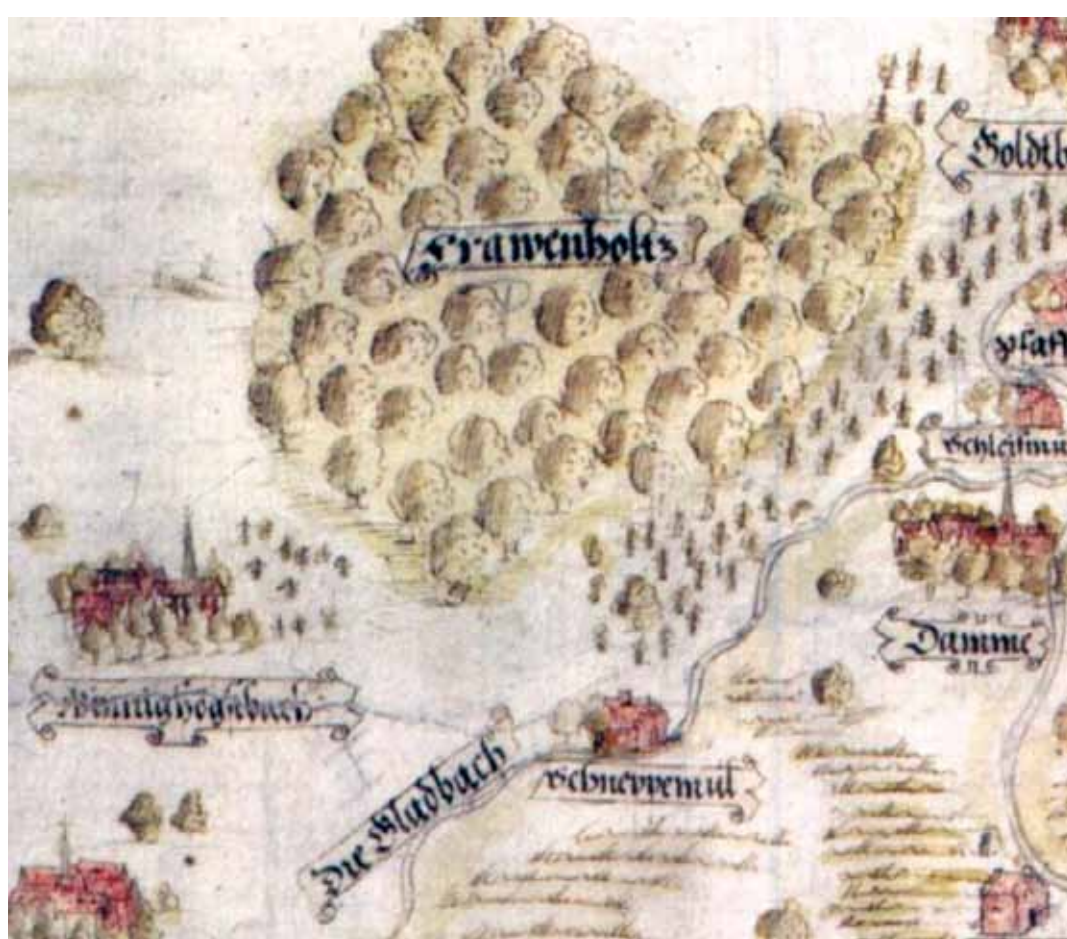 Goldtb
Frawenholtz
Pfaff
Schleifmu
Damme
Wennighögsbach
Die Gladbach
Schneppemul